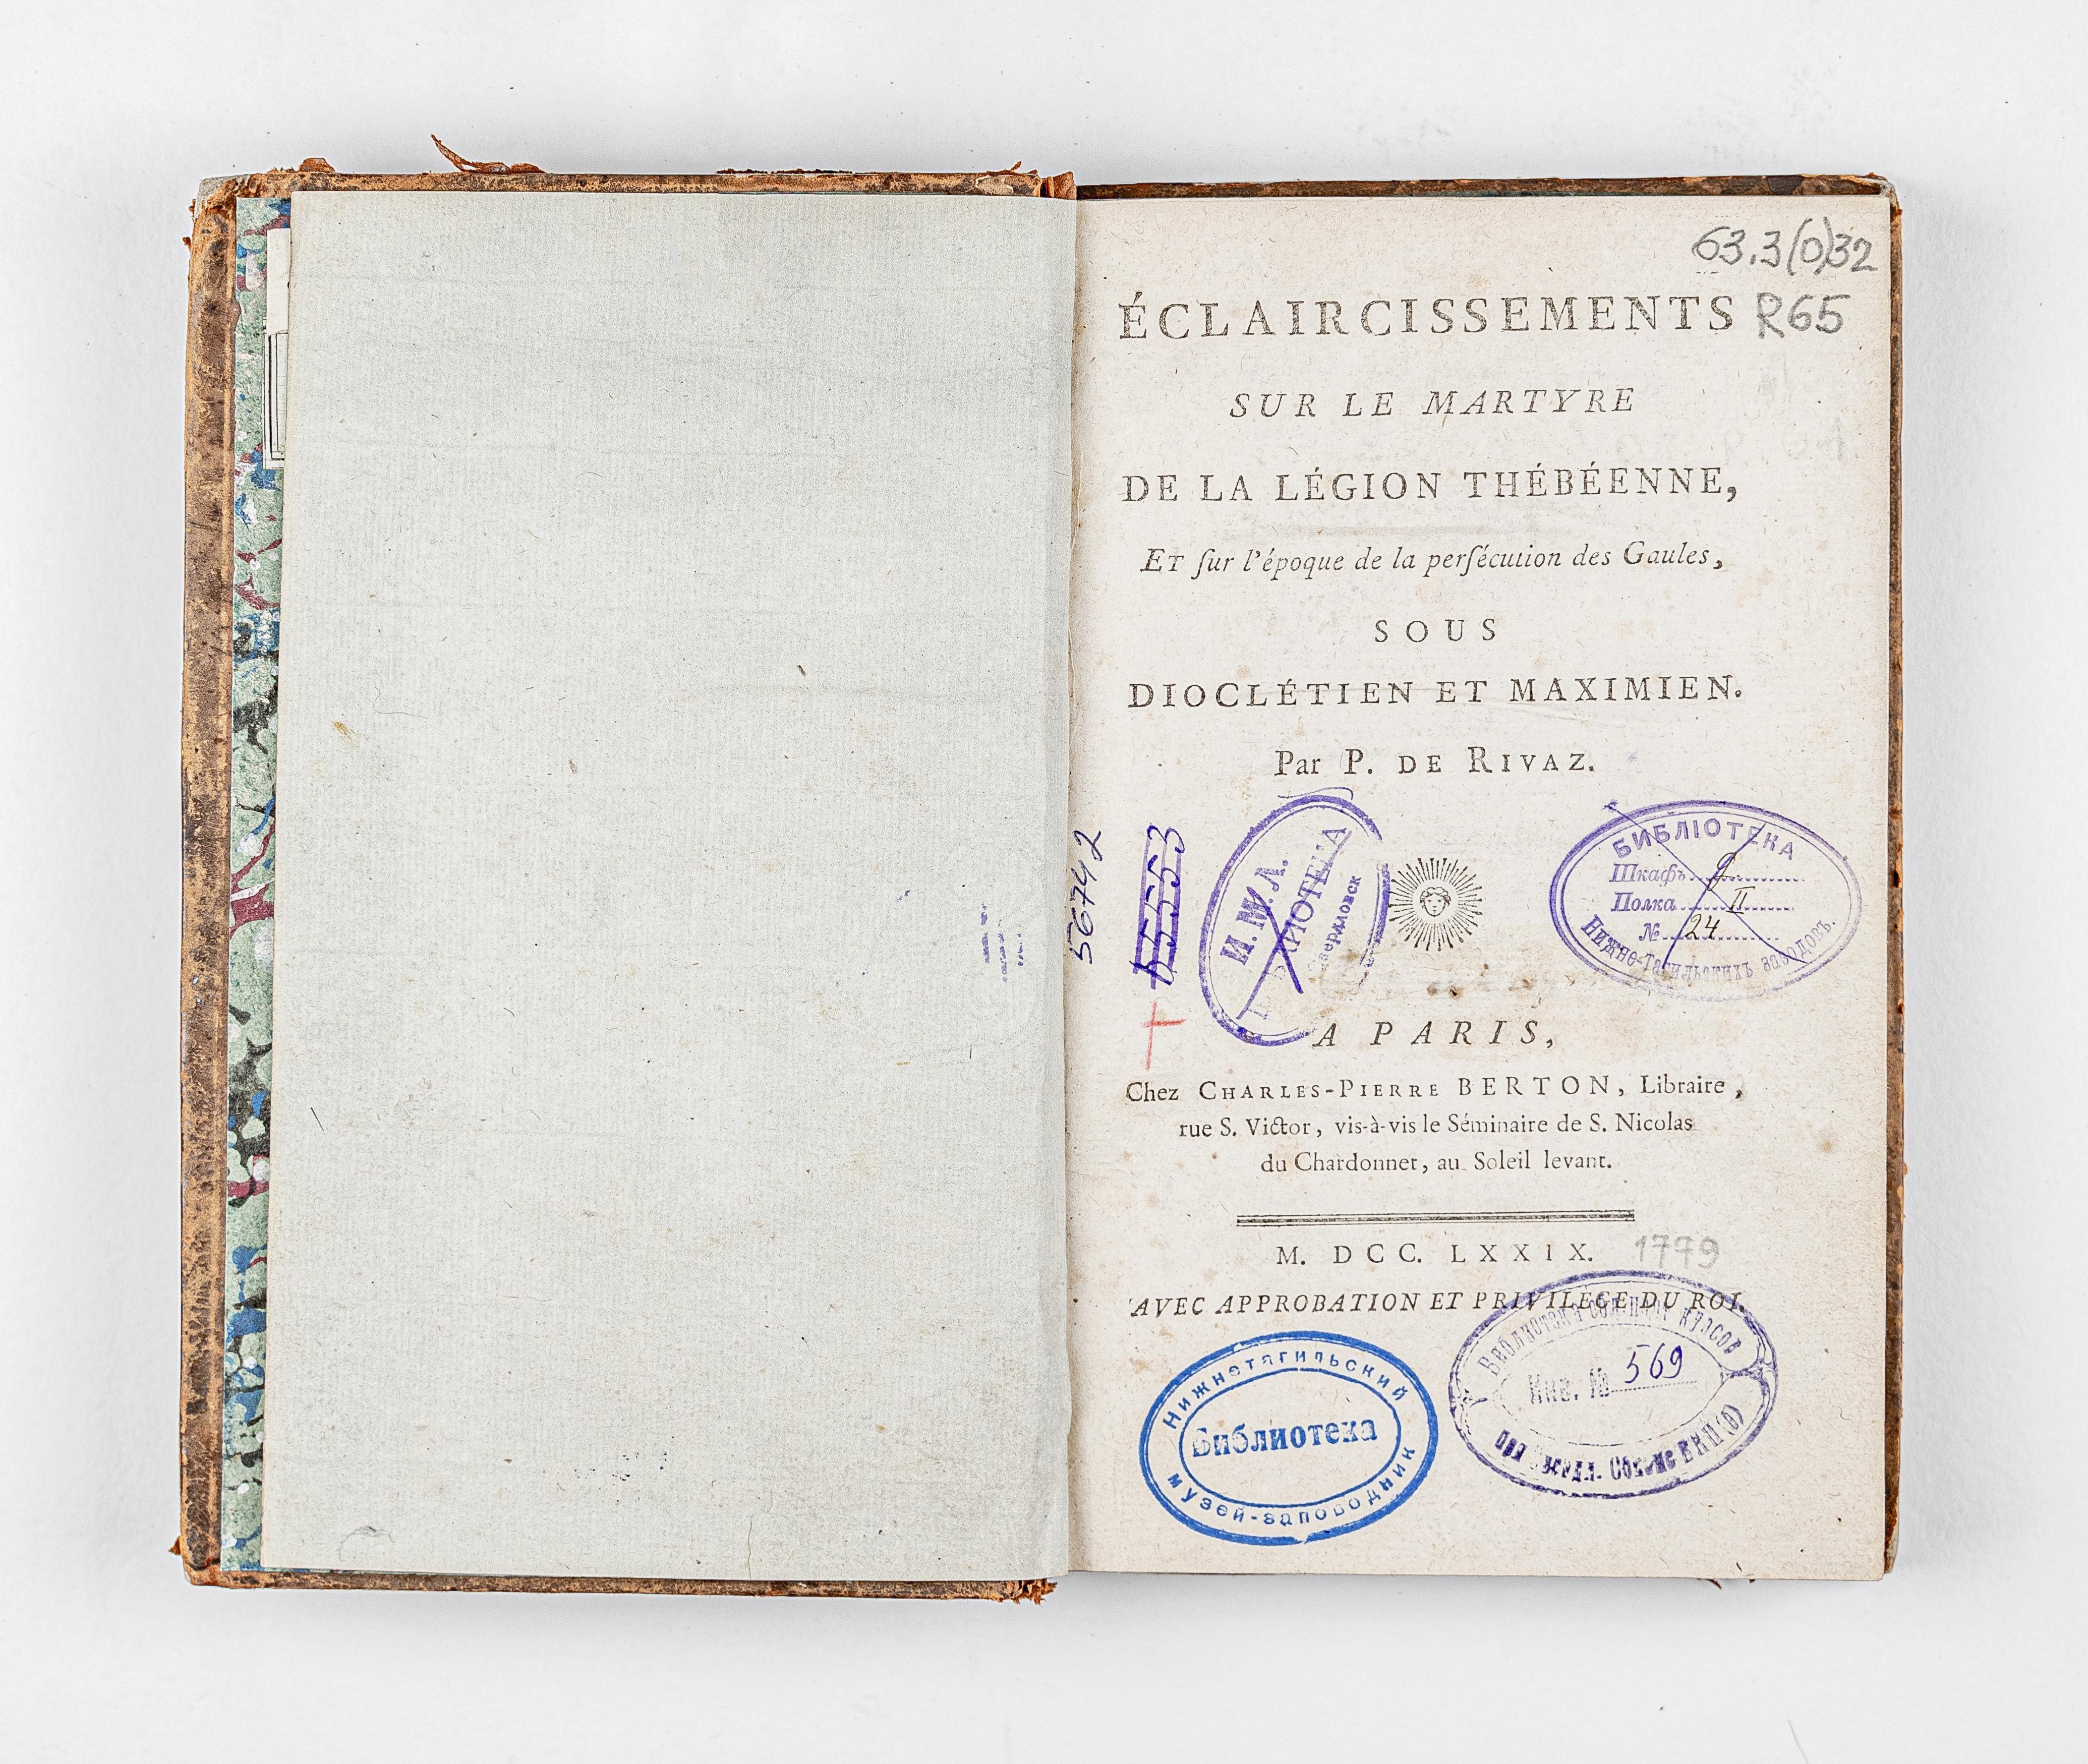 63.3(0)32
ÉCLAIRCISSEMENTS R65
SUR LE MARTYRE
DE LA LÉGION THÉBÉENNE,
ET ſur l'époque de la perſécution des Gaules,
SOUS
DIOCLÉTIEN ET MAXIMIEN.
Par P. DE RIVAZ.
56742
И.М.Л.
БИБЛІОТЕКА
Шкафъ
Полка II
№ 24
Нижне-Тагильскихъ заводовъ.
A PARIS,
Chez CHARLES-PIERRE BERTON, Libraire,
rue S. Victor, vis-à-vis le Séminaire de S. Nicolas
du Chardonnet, au Soleil levant.
M. DCC. LXXIX. 1779
AVEC APPROBATION ET PRIVILEGE DU ROI.
Нижнетагильский
Библиотека
музей-заповедник
Библиотека
Инв. № 569
ВКП(б)